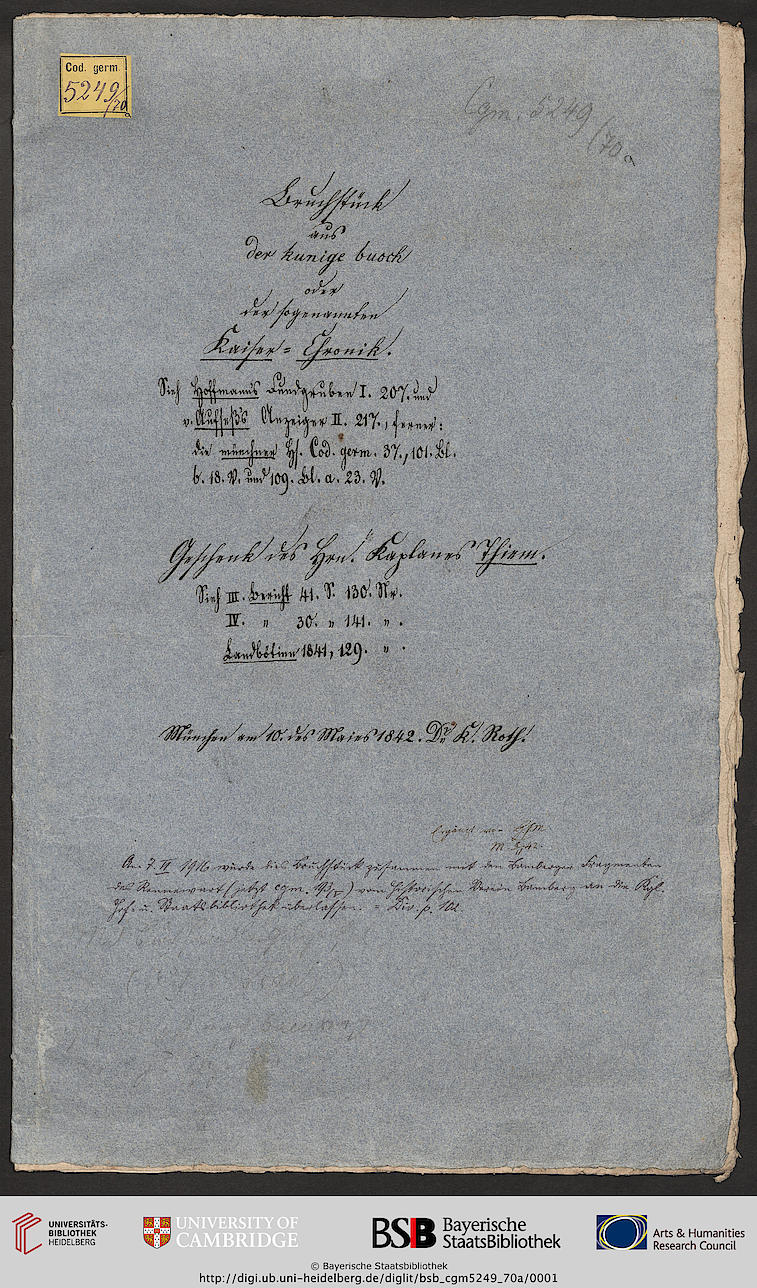 Cod. germ.
5249/70a
Cgm. 5249
/70a
Bruchstück
aus
der kunige buoch
oder
der sogenannten
Kaiser= Chronik.
Sieh Hoffmann's Fundgruben I. 207. und
v. Aufseß's Anzeiger II. 217., ferner:
die münchner Hs. Cod. germ. 37., 101. Bl.
b. 18. V. und 109. Bl. a. 23. V.
Geschenk des Hrn. Kaplanes Thiem.
Sieh III. Bericht 41. S. 130. Nr.
IV. " 30. " 141. " .
Landbötinn 1841, 129. " .
München am 10. des Maies 1842. Dr. K. Roth.
Am 7. II 1916 wurde dies Bruchstück zusammen mit den Bamberger Fragmenten
des Rennewart (jetzt cgm. 193) vom historischen Verein Bamberg an die Kgl.
Hof- u. Staatsbibliothek überlassen.
UNIVERSITÄTS-
BIBLIOTHEK
HEIDELBERG
UNIVERSITY OF
CAMBRIDGE
BSB Bayerische
StaatsBibliothek
Arts & Humanities
Research Council
© Bayerische Staatsbibliothek
http://digi.ub.uni-heidelberg.de/diglit/bsb_cgm5249_70a/0001